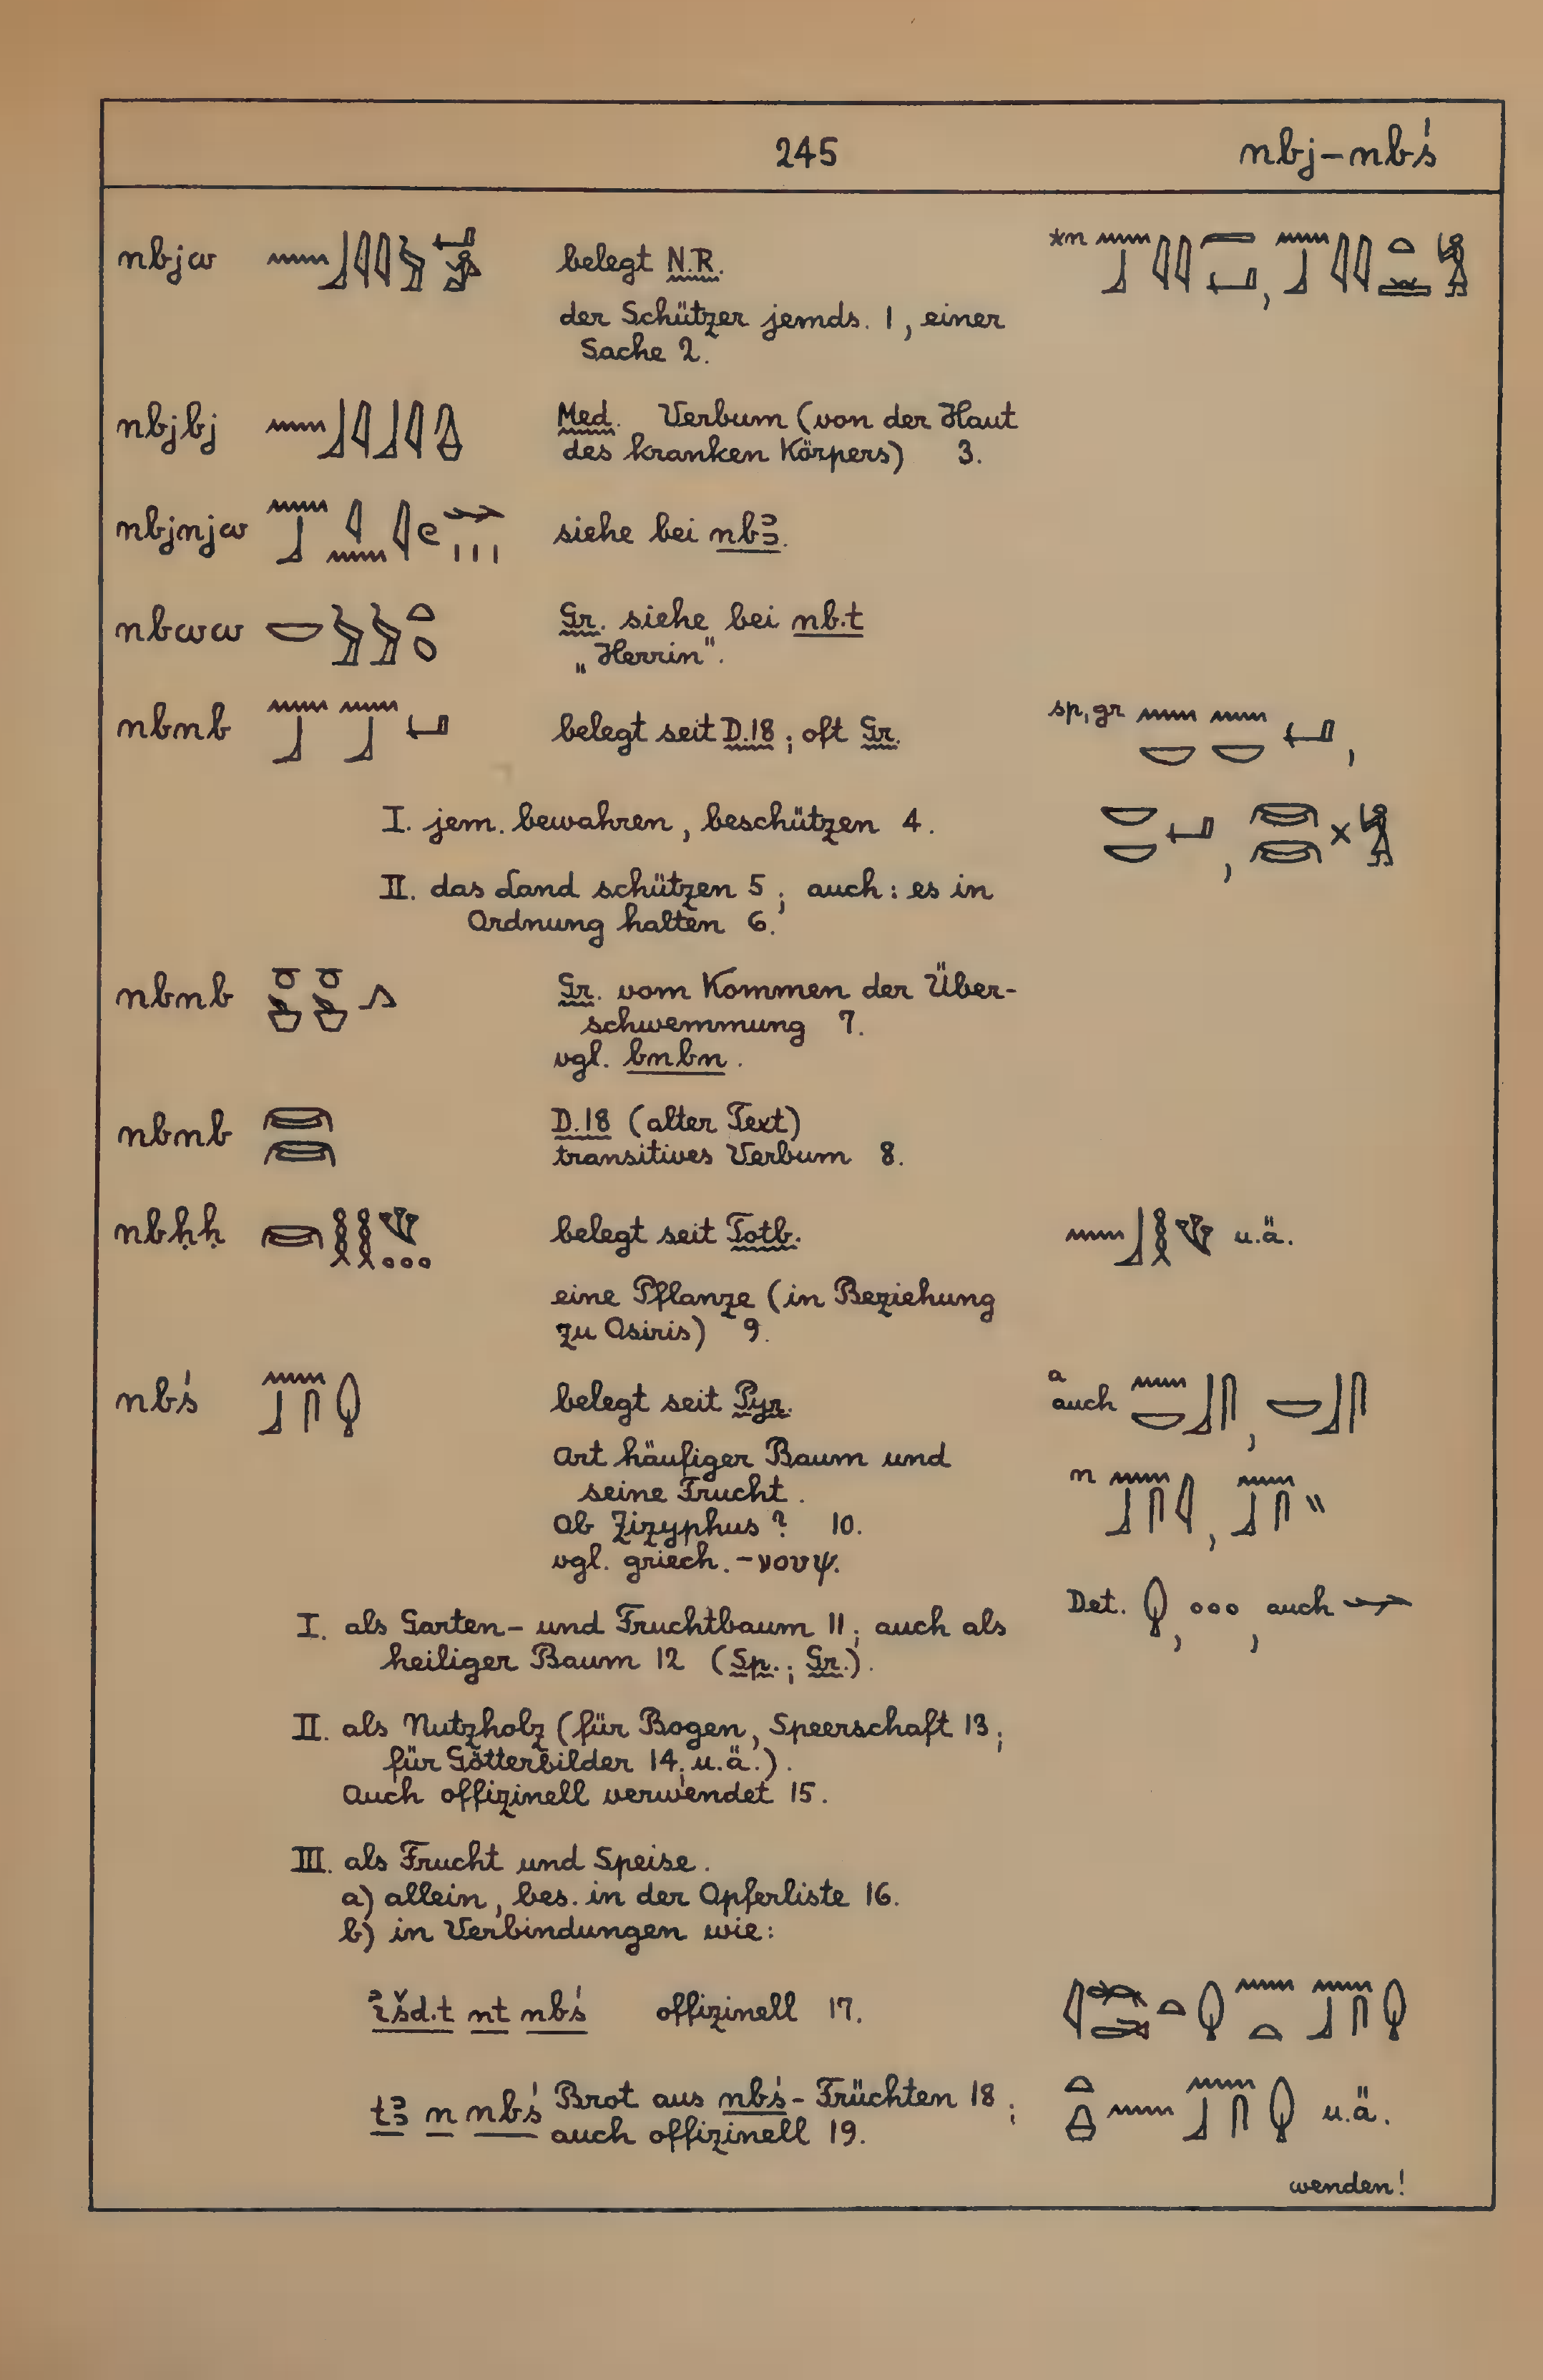 245 nbj-nbś
nbjw 𓈖𓃀𓇋𓇋𓅱 belegt N.R. *n 𓈖𓃀𓇋𓇋, 𓈖𓃀𓇋𓇋𓏏
der Schützer jemds. 1, einer
Sache 2.
nbjbj 𓈖𓃀𓇋𓃀𓇋 Med. Verbum (von der Haut
des kranken Körpers) 3.
nbjnjw 𓈖𓃀𓇋𓈖𓇋𓏲𓆱𓏥 siehe bei nbꜣ.
nbww 𓎟𓅱𓅱𓏏𓆇 Gr. siehe bei nb.t
„Herrin".
nbnb 𓈖𓃀𓈖𓃀𓂡 belegt seit D.18; oft Gr. sp, gr 𓈖𓎟𓈖𓎟𓂡,
I. jem. bewahren, beschützen 4. 𓎟𓎟𓂡, 𓏴𓀜
II. das Land schützen 5; auch: es in
Ordnung halten 6.
nbnb 𓂻 Gr. vom Kommen der Über-
schwemmung 7.
vgl. bnbn.
nbnb 𓋞𓋞 D.18 (alter Text)
transitives Verbum 8.
nbḥḥ 𓋞𓎛𓎛𓆰 belegt seit Totb. 𓈖𓃀𓎛𓆰 u.ä.
eine Pflanze (in Beziehung
zu Osiris) 9.
nbś 𓈖𓃀𓋴𓆭 belegt seit Pyr. a
auch 𓈖𓎟𓃀𓋴, 𓎟𓃀𓋴
Art häufiger Baum und
seine Frucht. n 𓈖𓃀𓋴𓇋, 𓈖𓃀𓋴𓏭
Ob Zizyphus? 10.
vgl. griech. -νουψ.
Det. 𓆭, ooo, auch 𓆱
I. als Garten- und Fruchtbaum 11; auch als
heiliger Baum 12 (Sp.; Gr.).
II. als Nutzholz (für Bogen, Speerschaft 13;
für Götterbilder 14; u.ä.).
Auch offizinell verwendet 15.
III. als Frucht und Speise.
a) allein, bes. in der Opferliste 16.
b) in Verbindungen wie:
ı͗šd.t nt nbś offizinell 17. 𓇋𓈙𓂧𓏏𓆭𓈖𓏏𓈖𓃀𓋴𓆭
tꜣ n nbś Brot aus nbś-Früchten 18; 𓏏𓏙𓈖𓈖𓃀𓋴𓆭 u.ä.
auch offizinell 19.
wenden!